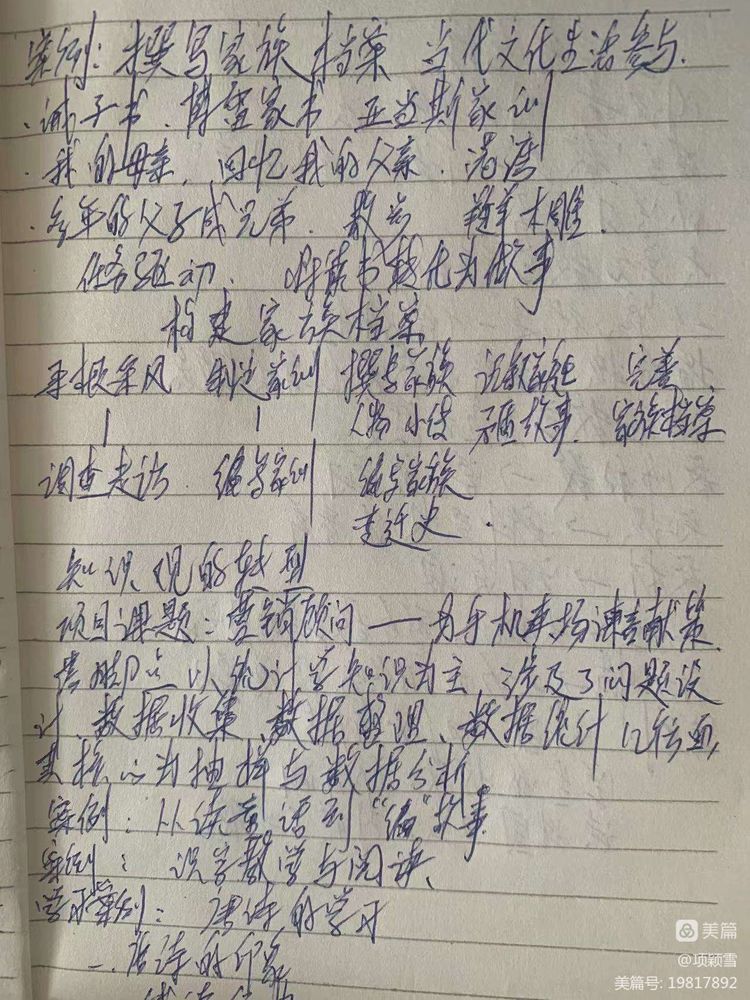 案例：撰写家族档案 当代文化生活参与.
·诫子书、傅雷家书 亚当斯家训
·我的母亲、回忆我的父亲、
·多年的父子成兄弟、
任务驱动、将读书转化为做事
构建家族档案
采风 制定家训 撰写家族 记录 完善
人物小传 故事. 家族档案
调查走访. 编写家训 编写家族
迁史.
知识观的转型
项目课题：营销顾问——为手机市场谏言献策.
以统计学知识为主 涉及了问题设
计、数据收集、数据整理、数据统计
其核心为抽样与数据分析
案例：从读童话到“编”故事
案例：识字教学与阅读、
学习案例：唐诗的学习
一.唐诗的印象
美篇
@项颖雪
美篇号: 19817892